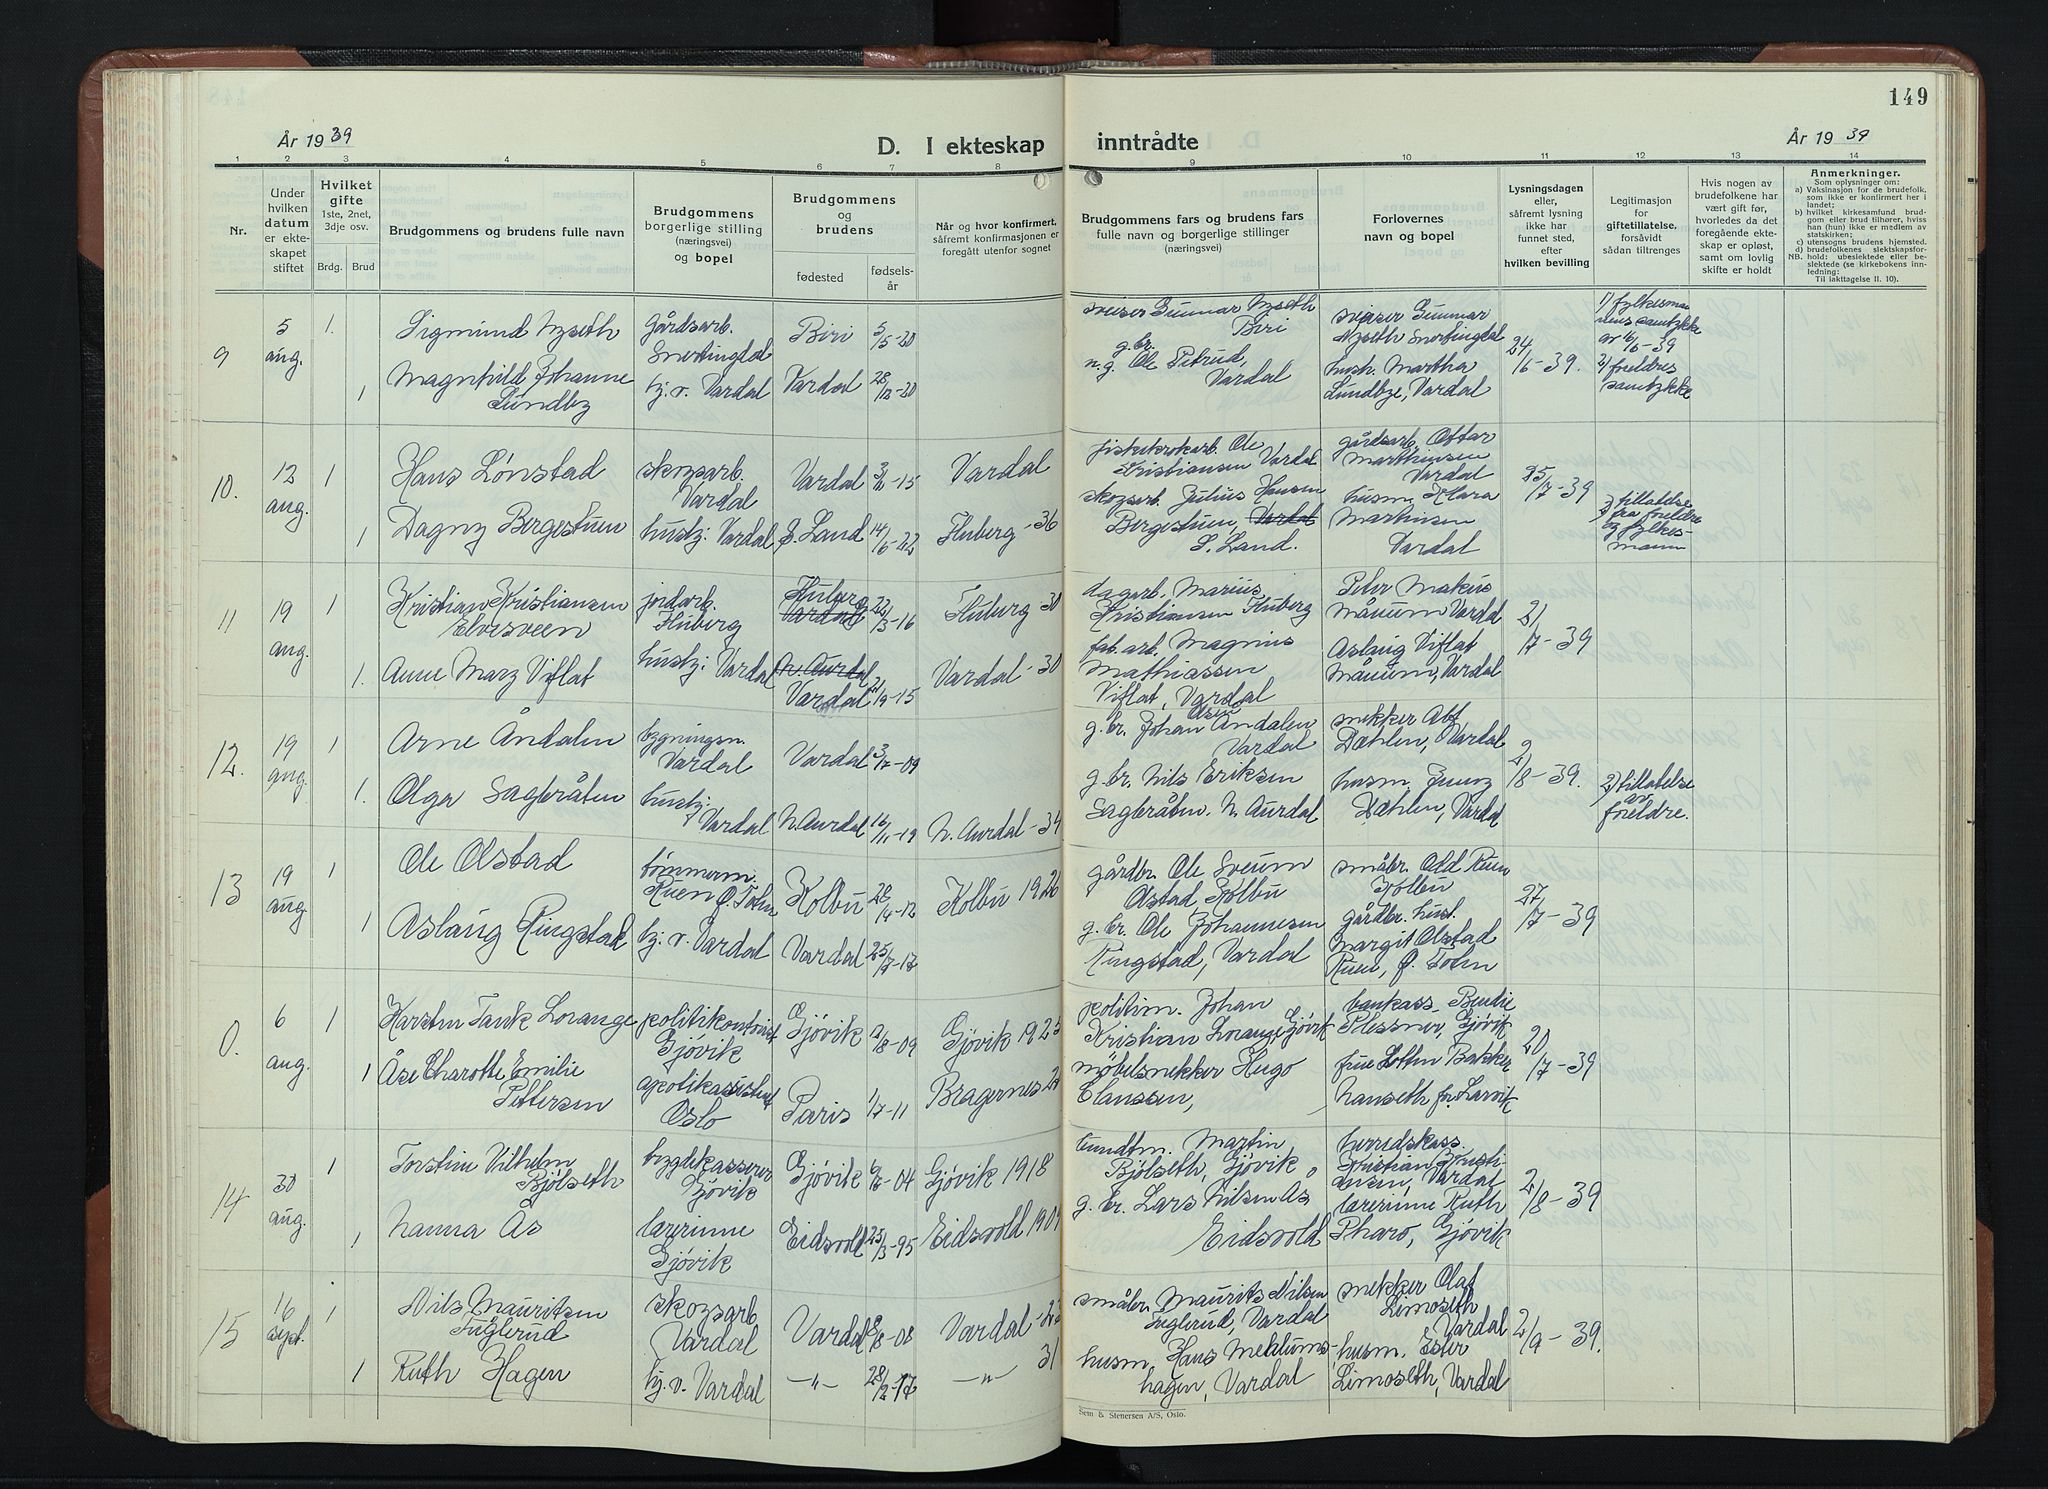 149
År 1939
D. I ekteskap inntrådte
År 1939
1 2 3 4 5 6 7 8 9 10 11 12 13 14
Nr.
Under
hvilken
datum
er ekte-
skapet
stiftet
Hvilket
gifte
1ste, 2net,
3dje osv.
Brdg. Brud
Brudgommens og brudens fulle navn
Brudgommens
borgerlige stilling
(næringsvei)
og bopel
Brudgommens
og
brudens
fødested
fødsels-
år
Når og hvor konfirmert,
såfremt konfirmasjonen er
foregått utenfor sognet
Brudgommens fars og brudens fars
fulle navn og borgerlige stillinger
(næringsvei)
Forlovernes
navn og bopel
Lysningsdagen
eller,
såfremt lysning
ikke har
funnet sted,
efter
hvilken bevilling
Legitimasjon
for
giftetillatelse,
forsåvidt
sådan tiltrenges
Hvis nogen av
brudefolkene har
vært gift før,
hvorledes da det
foregående ekte-
skap er opløst,
samt om lovlig
skifte er holdt
Anmerkninger.
Som oplysninger om:
a) Vaksinasjon for de brudefolk,
som ikke er konfirmert her i
landet;
b) hvilket kirkesamfund brud-
gom eller brud tilhører, hviss
han (hun) ikke er medlem av
statskirken;
c) utensogns brudens hjemsted.
d) brudefolkenes slektskapsfor-
NB. hold: ubeslektede eller be-
slektede (se kirkebokens inn-
ledning:
Til iakttagelse II. 10).
9
5
aug.
1.
Sigmund Nyseth
gårdsarb.
Snertingdal
Biri
5/5-20
sveiser Gunnar Nyseth
Biri
sveiser Gunnar
Nyseth Snertingdal
24/6-39.
1) fylkesman
nens samtykke
av 16/6-39
1
Magnhild Johanne
Lundby
hj. v. Vardal
Vardal
28/12-20
g.br.
n.g. Ole Petrud,
Vardal
hush. Martha
Lundbye, Vardal
2) foreldres
samtykke
10.
12
aug.
1
Hans Lønstad
skogsarb.
Vardal
Vardal
3/11-15
Vardal
Ole
Kristiansen Vardal
gårdsarb. Ottar
Marthinsen
Vardal
25/7-39
1
Dagny Bergestuen
hushj: Vardal
S. Land
14/6-22
Fluberg -36
skogsarb. Julius Hansen
Bergestuen, Vardal
S. Land.
husm. Klara
Marthinsen
Vardal
2) tillatelse
fra foreldre
og fylkes-
mann
11
19
aug.
1
Kristian Kristiansen
Elvesveen
jordarb.
Fluberg
Fluberg
Vardal
22/3-16
Fluberg -30
dagarb. Marius
Kristiansen Fluberg
Peter Makus
Måuum Vardal
21/7-39
1.
Anne Mary Viflat
hushj: Vardal
N. Aurdal
Vardal
21/9-15
Vardal -30
fab. arb. Magnus
Mathiassen
Viflat, Vardal
Aslaug Viflat
Måuum, Vardal
12.
19
aug.
1
Arne Åndalen
bygningsn.
Vardal
Vardal
3/7-09
g. br. Johan Åsen Åndalen
Vardal
snekker Alf
Dæhlen, Vardal
2/8-39.
1.
Olga Sagbråten
hushj:
Vardal
N. Aurdal
16/11-19
N. Aurdal -34
g. br. Nils Eriksen
Sagbråten. N. Aurdal
husm. Jenny
Dæhlen, Vardal
2) tillatelse
av
foreldre.
13
19
aug.
1
Ole Olstad
tømmerm.
Ruen Ø. Toten
Kolbu
28/4-12
Kolbu 1926
gårdbr. Ole Sveum
Olstad Kolbu
småbr. Odd Ruen
Kolbu
27/7-39
1
Aslaug Ringstad
hj. v. Vardal
Vardal
25/7-17
g. br. Ole Johannesen
Ringstad, Vardal
gårdbr. hust.
Margit Olstad
Ruen, Ø. Toten
0.
6
aug.
1
Karsten Tank Lorange
politikontorist
Gjøvik
Gjøvik
12/8-09
Gjøvik 1925
politim. Johan
Kristian Lorange, Gjøvik
bankass. Bendie
Plessner, Gjøvik
20/7-39
1
Åse Charotte Emilie
Pettersen
apotikassistent
Oslo
Paris
1/7-11
Bragernes
møbelsnekker Hugo
Clanssen,
frue Lotten Bakker
Hanseth fr. Larvik
14
30
aug.
1
Torstein Vilhelm
Bjølseth
bygdekasserer
Gjøvik
Gjøvik
Gjøvik 1918
bundtm. Martin
Bjølseth, Gjøvik
herredskass.
Kristian Kristi-
ansen, Vardal
2/8-39
1
Nanna Ås
lærerinne
Gjøvik
Eidsvold
25/3-95
Eidsvold 1909
g. br. Lars Nilsen Ås
Eidsvold
lærerinne Ruth
Pharo, Gjøvik
15
16
sept.
1
Nils Mauritsen
Fuglerud
skogsarb
Vardal
Vardal
Vardal -23
småbr. Maurits Nilsen
Fuglerud, Vardal
snekker Olaf
Limoseth
Vardal
2/9-39.
1
Ruth Hagen
hj. v. Vardal
—"—
28/2-17
—"— 31
husm. Hans Mehlums-
hagen, Vardal
husm. Ester
Limoseth, Vardal
Sem & Stenersen A/S, Oslo.